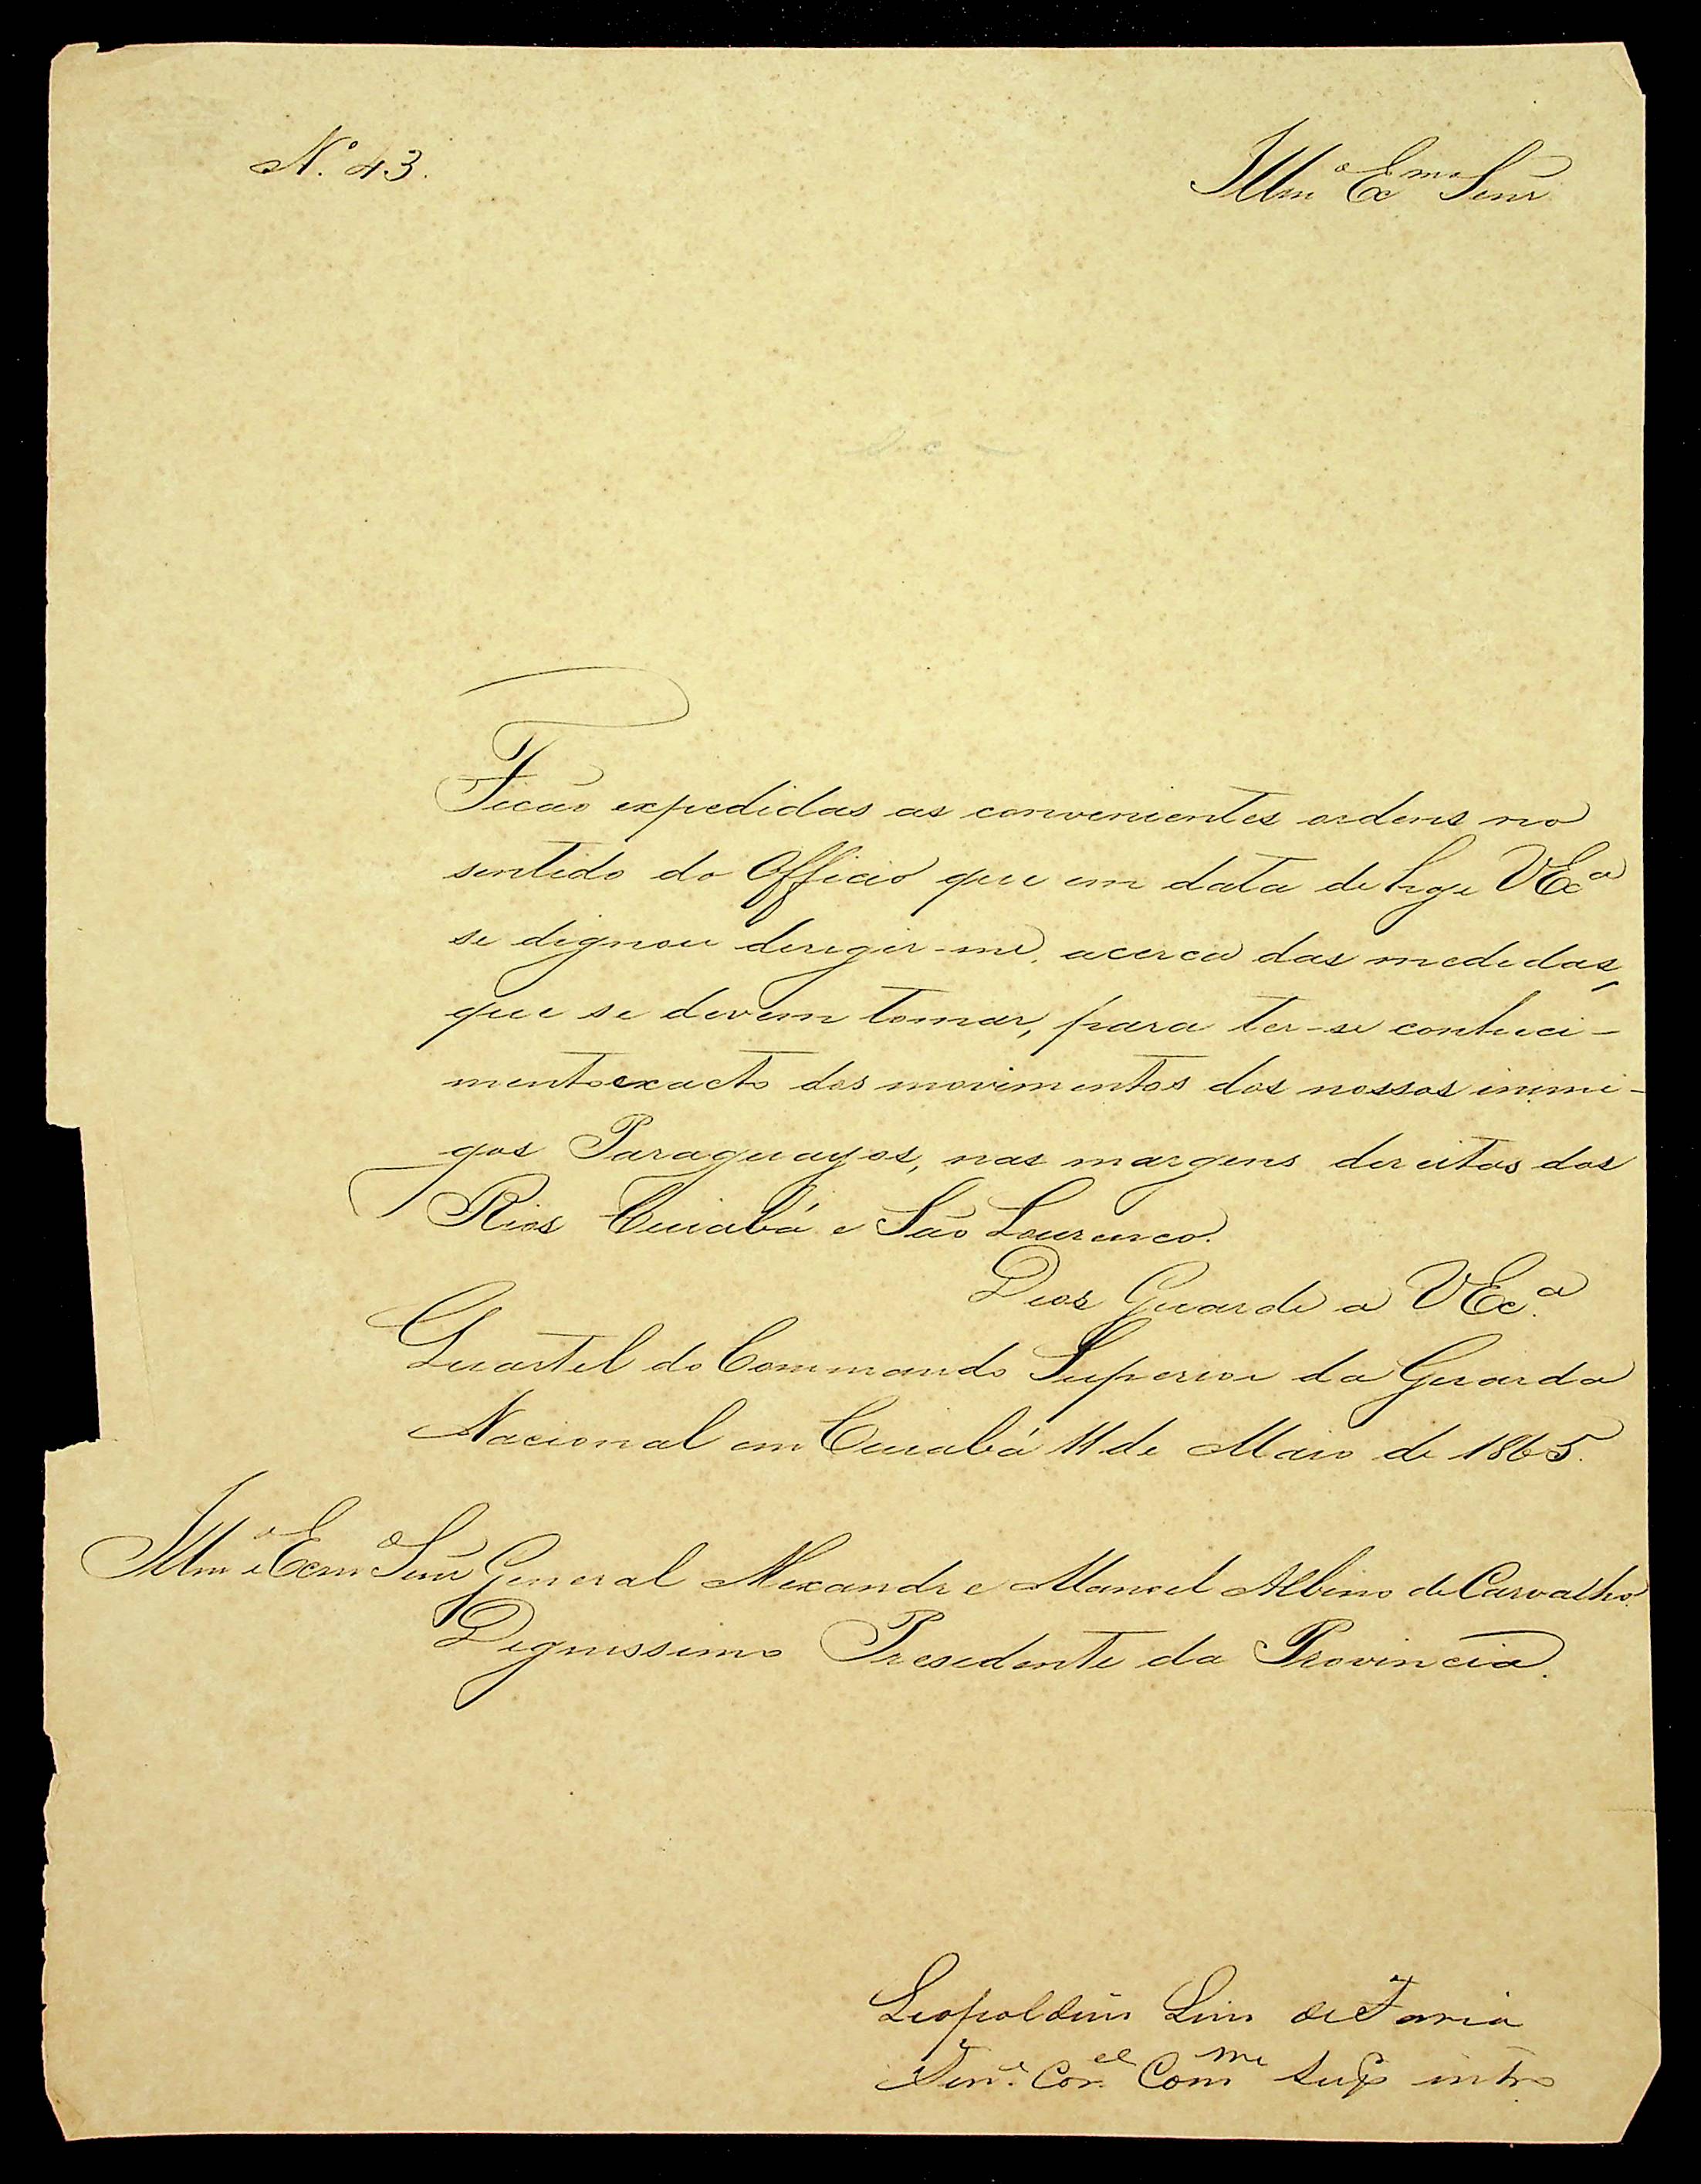 N.º 43.
Illmº Exmº Senr
Ficão expedidas as convenientes ordens no
sentido do Officio que em data de hoje VExª
se dignou deregir-me, acerca das medidas,
que se devem tomar, para ter-se conheci-
mento exacto dos movimentos dos nossos inimi-
gos Paraguayos, nas margens dereitas dos
Rios Cuiabá e São Lourenco.
Deos Guarde a VExª.
Quartel do Commando Superior da Guarda
Nacional em Cuiabá 11 de Maio de 1865.
Illmº e Exmº Senr General Alexandre Manoel Albino de Carvalho.
Dignissimo Presedente da Provincia.
Leopoldino Lino de Faria
Tene. Corel Comme Supº intrº